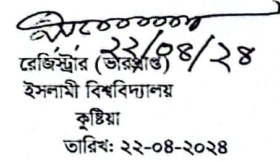 ২২/০৪/২৪
রেজিস্ট্রার (ভারপ্রাপ্ত)
ইসলামী বিশ্ববিদ্যালয়
কুষ্টিয়া
তারিখ: ২২-০৪-২০২৪